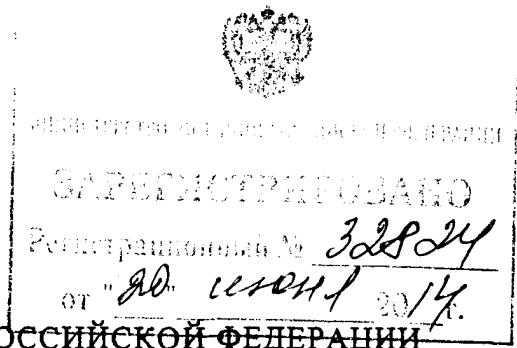 ЗАРЕГИСТРИРОВАНО
Регистрационный № 32824
от "20" июня 2014 г.
РОССИЙСКОЙ ФЕДЕРАЦИИ